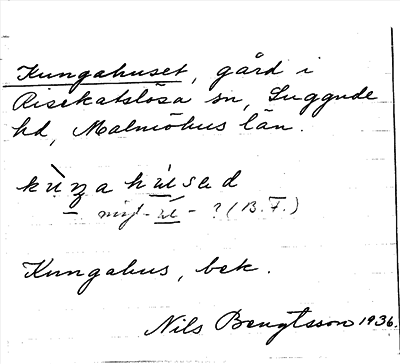 Kungahuset, gård i
Risekatslösa sn, Luggude
hd, Malmöhus län.
kùŋahúsəd
- ? (B.F.)
Kungahus, bek.
Nils Bengtsson 1936.